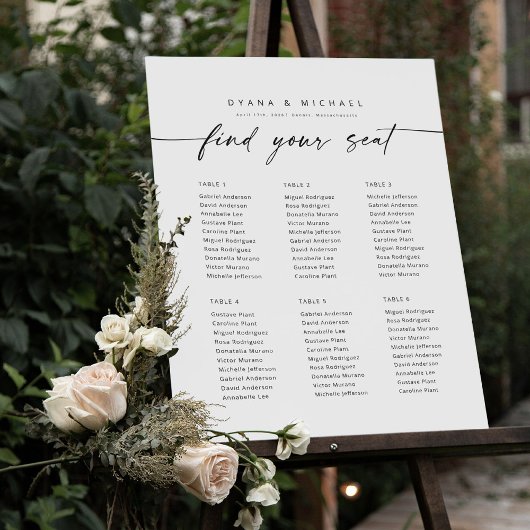 DYANA & MICHAEL
April 17th, 2026 | Dorset, Massachusetts
find your seat
TABLE 1
Gabriel Anderson
David Anderson
Annabelle Lee
Gustave Plant
Caroline Plant
Miguel Rodriguez
Rosa Rodriguez
Donatella Murano
Victor Murano
Michelle Jefferson
TABLE 2
Miguel Rodriguez
Rosa Rodriguez
Donatella Murano
Victor Murano
Michelle Jefferson
Gabriel Anderson
David Anderson
Annabelle Lee
Gustave Plant
Caroline Plant
TABLE 3
Michelle Jefferson
Gabriel Anderson
David Anderson
Annabelle Lee
Gustave Plant
Caroline Plant
Miguel Rodriguez
Rosa Rodriguez
Donatella Murano
Victor Murano
TABLE 4
Gustave Plant
Caroline Plant
Miguel Rodriguez
Rosa Rodriguez
Donatella Murano
Victor Murano
Michelle Jefferson
Gabriel Anderson
David Anderson
Annabelle Lee
TABLE 5
Gabriel Anderson
David Anderson
Annabelle Lee
Gustave Plant
Caroline Plant
Miguel Rodriguez
Rosa Rodriguez
Donatella Murano
Victor Murano
Michelle Jefferson
TABLE 6
Miguel Rodriguez
Rosa Rodriguez
Donatella Murano
Victor Murano
Michelle Jefferson
Gabriel Anderson
David Anderson
Annabelle Lee
Gustave Plant
Caroline Plant